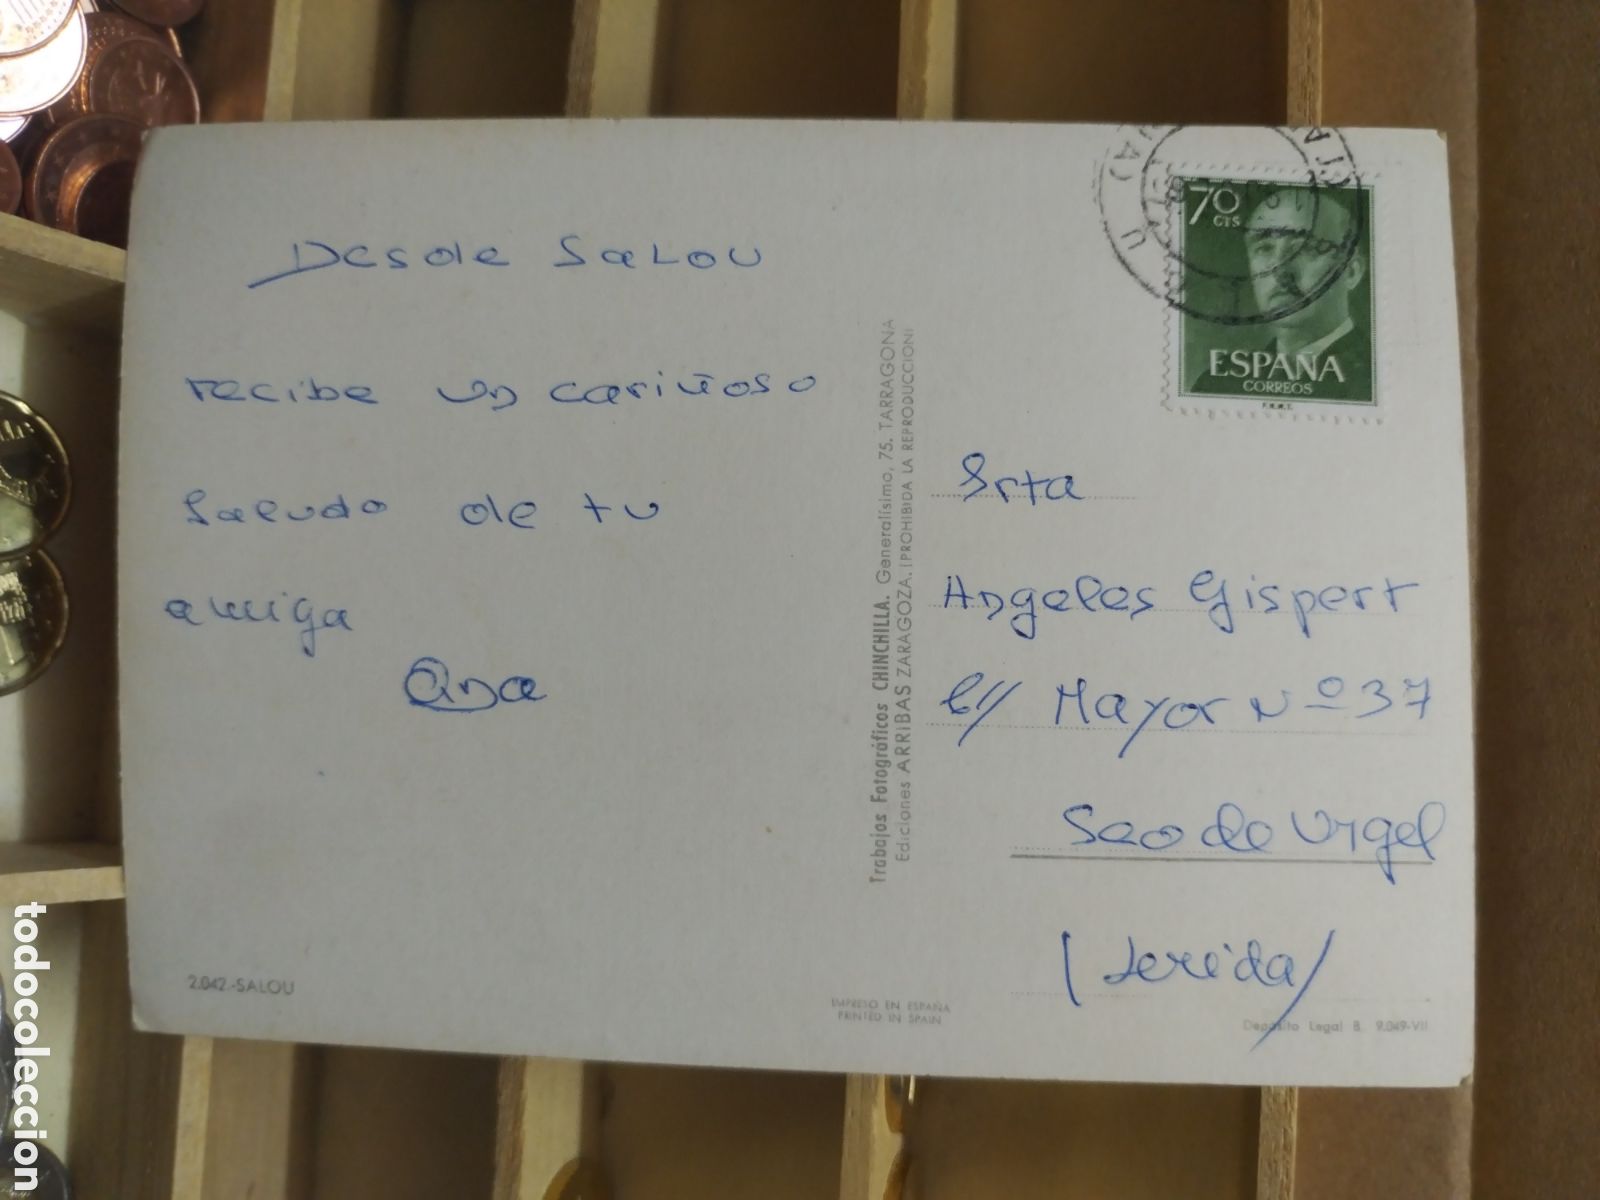 Desde Salou
recibe un cariñoso
saludo de tu
amiga
Ana
2.042.-SALOU
Trabajos Fotográficos CHINCHILLA. Generalísimo, 75. TARRAGONA
Ediciones ARRIBAS ZARAGOZA. (PROHIBIDA LA REPRODUCCION)
IMPRESO EN ESPAÑA
PRINTED IN SPAIN
70
CTS
ESPAÑA
CORREOS
F.N.M.T.
Srta
Angeles Gispert
C// Mayor Nº 37
Seo de Urgel
(Lerida)
Depósito Legal B. 9.049-VII
todocoleccion